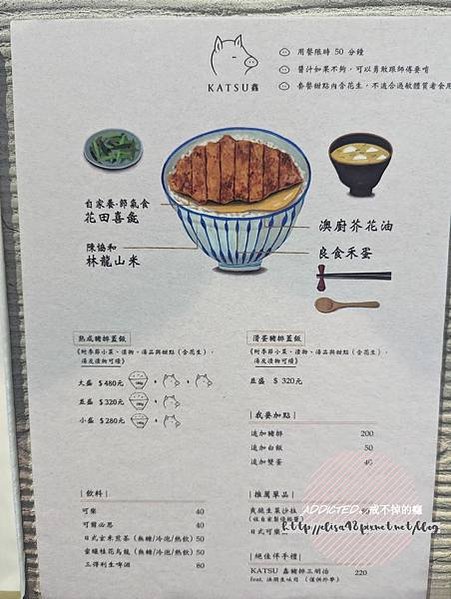 KATSU鑫
用餐限時 50 分鐘
醬汁如果不夠，可以勇敢跟師傅要唷
套餐甜點內含花生，不適合過敏體質者食用
自家養·節氣食
花田喜彘
陳協和
林龍山米
澳廚芥花油
良食禾蛋
熟成豬排蓋飯
《附季節小菜、漬物、湯品與甜點（含花生），
湯及漬物可續》
大盛 $460元
並盛 $320元
小盛 $280元
滑蛋豬排蓋飯
《附季節小菜、漬物、湯品與甜點（含花生），
湯及漬物可續》
並盛 $320元
|我要加點|
追加豬排 200
追加白飯 50
追加雙蛋 40
|飲料|
可樂 40
可爾必思 40
日式玄米煎茶（無糖/冷泡/熱飲） 50
蜜蠟桂花烏龍（無糖/冷泡/熱飲） 50
三得利生啤酒 80
|推薦單品|
爽脆生菜沙拉
日式可樂
|絕佳伴手禮|
KATSU 鑫豬排三明治 220
feat.
ADDICTED。戒不掉的癮
http://elisa98.pixnet.net/blog